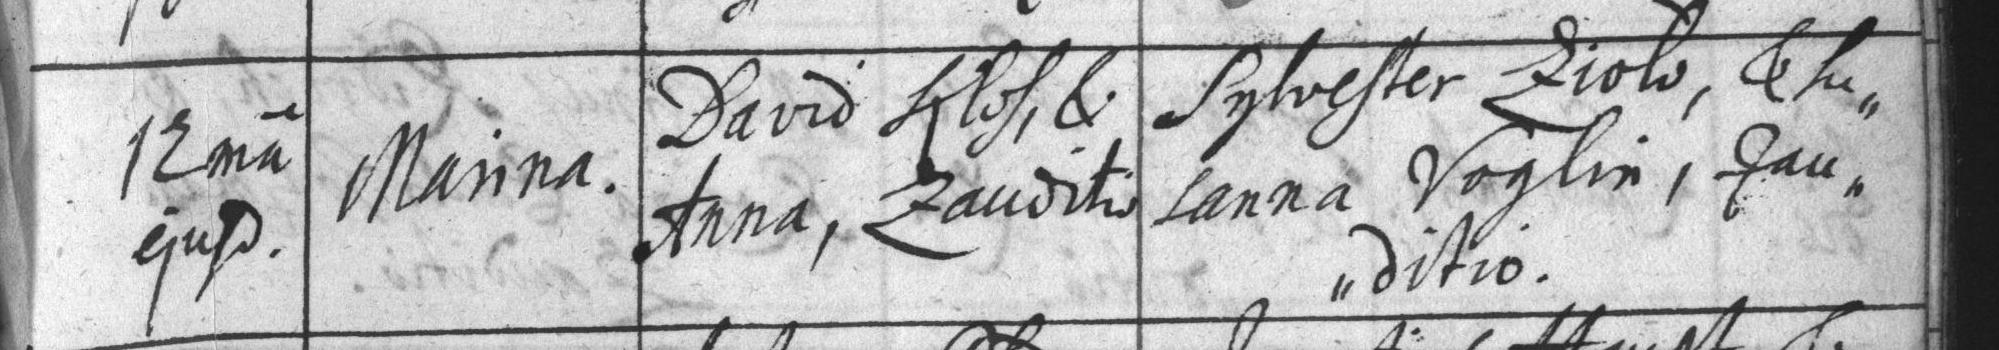 12mâ
ejusd.
Marina.
David Klos, &
Anna, Zauditio
Sylvester Ziolo, & Su„
sanna Voglin, Zau„
„ditio.